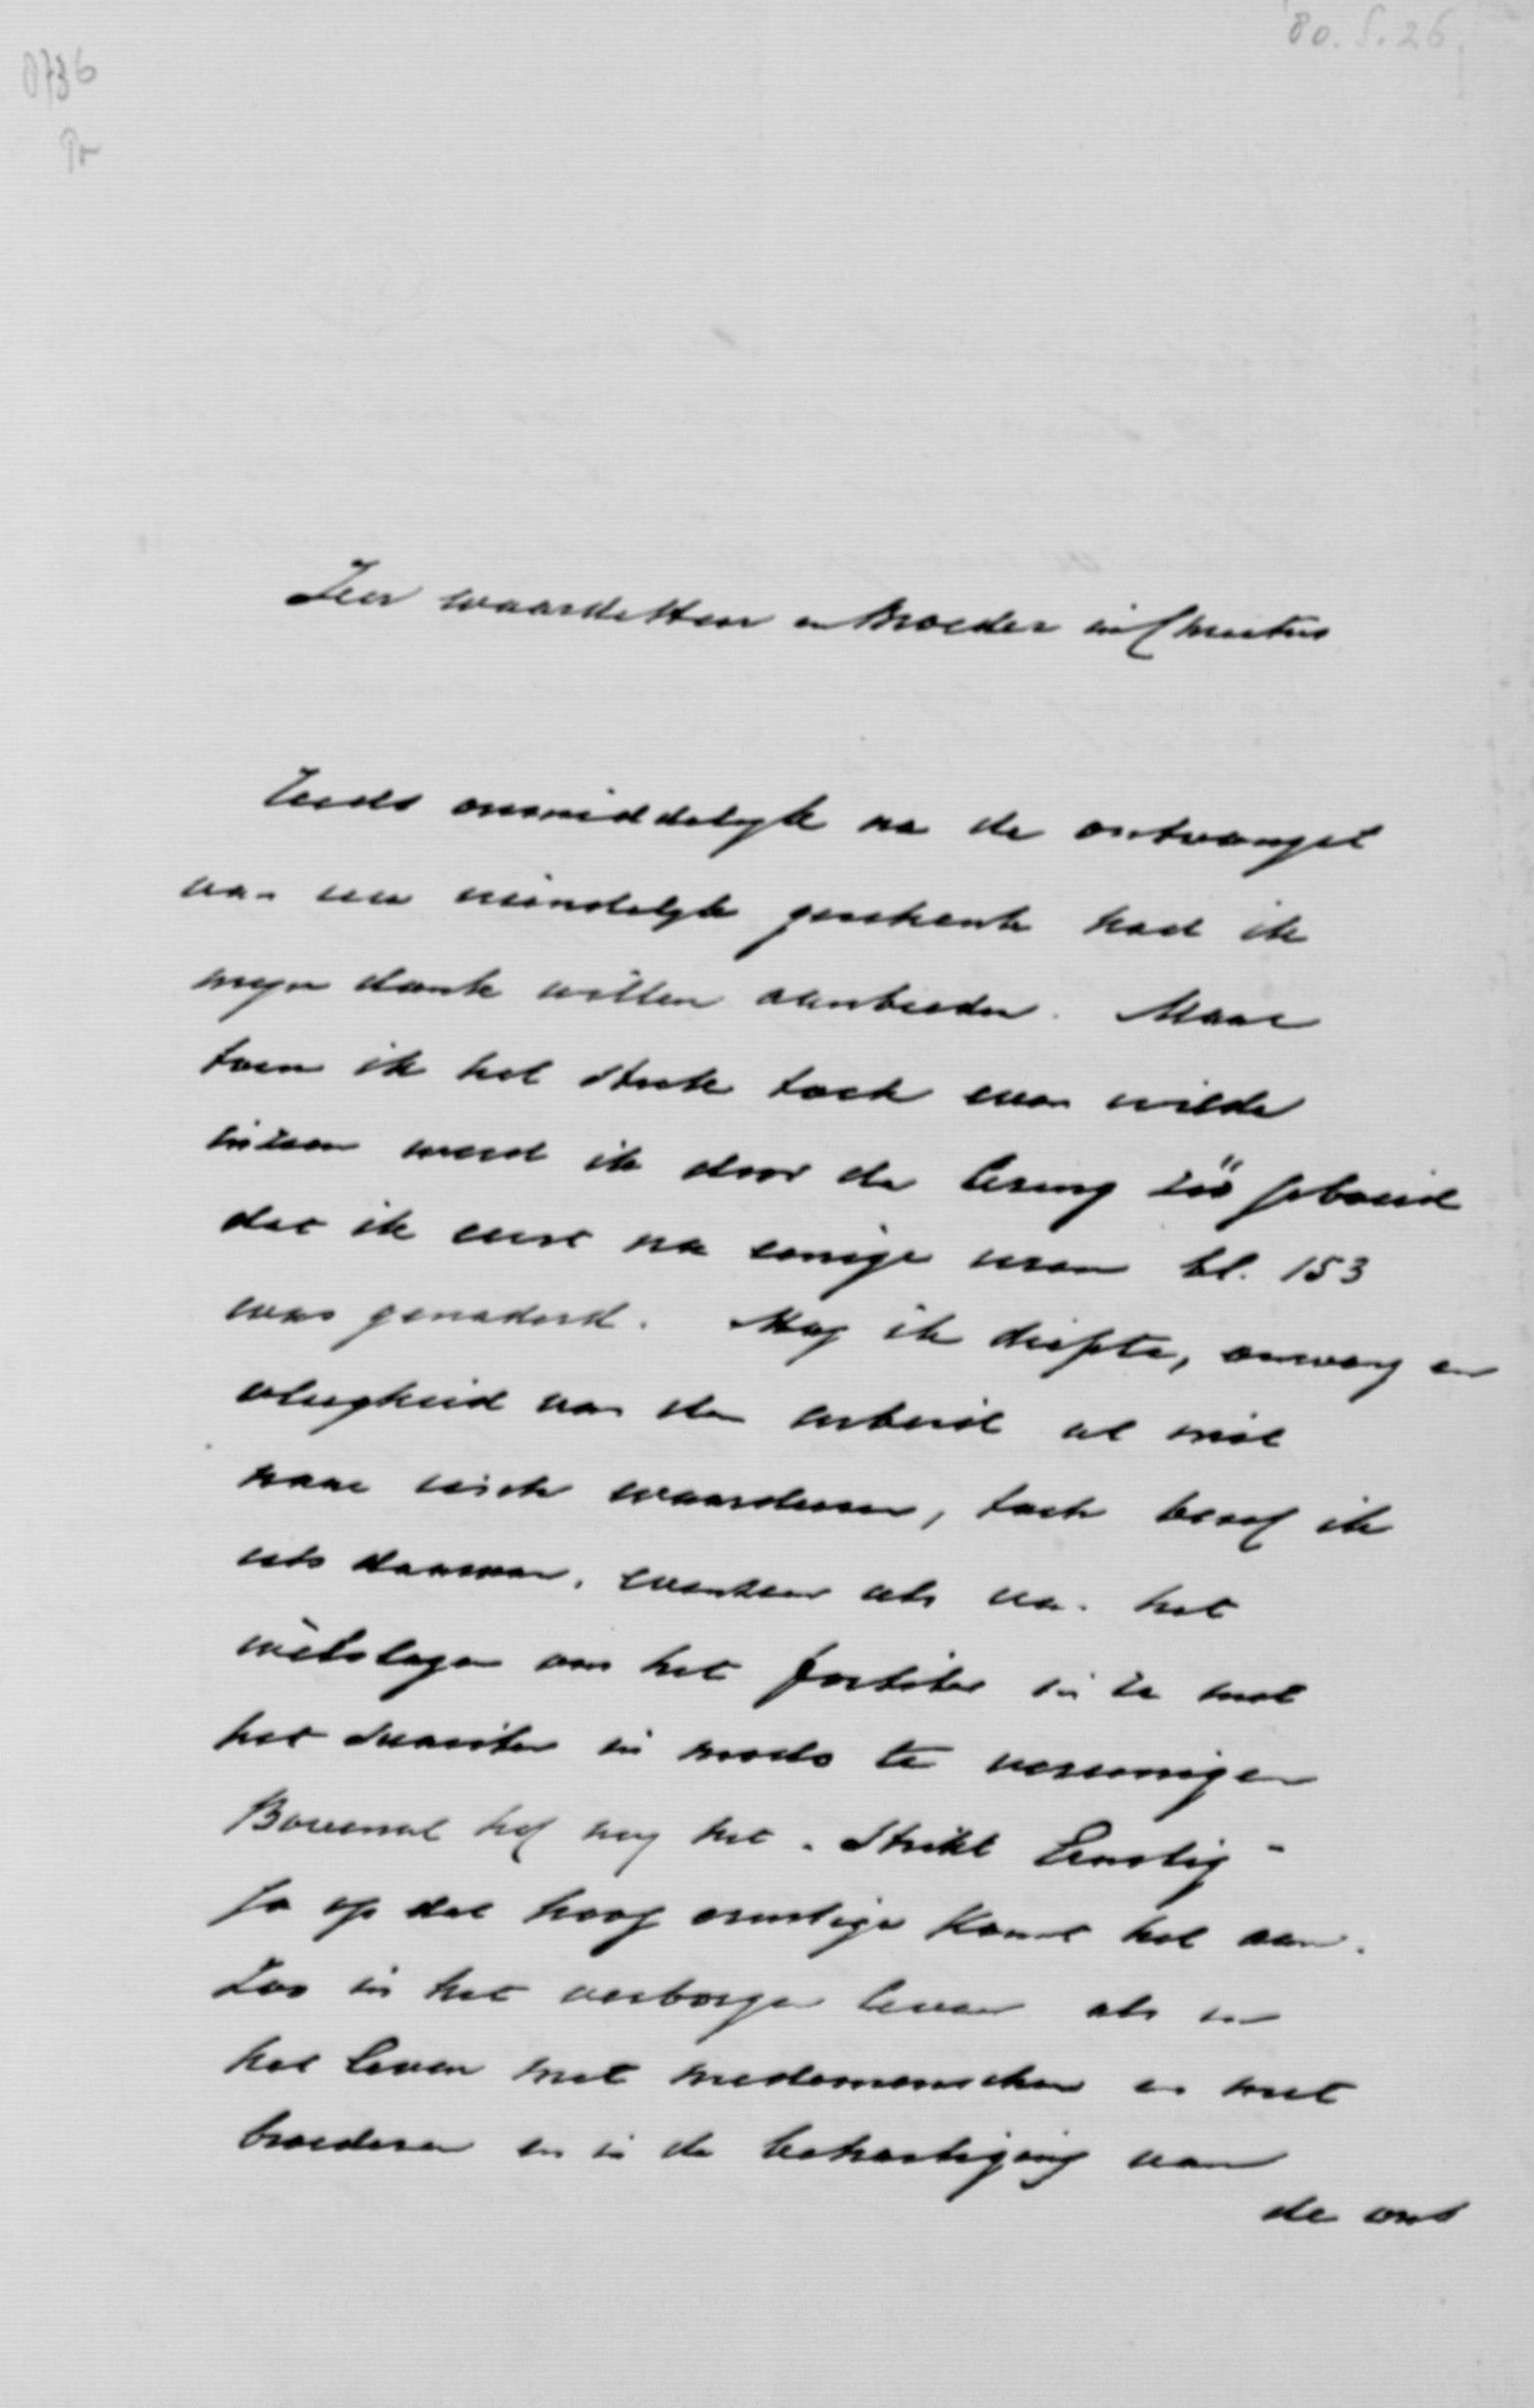 80.5.26
0736
Pr
Zeer waarde Heer en Broeder in Christus
Reeds onmiddelyk na de ontvangst
van uw vriendelyk geschenk had ik
myn dank willen aanbieden. Maar
toen ik het stuk toch even wilde
inzien werd ik door de lezing zóó geboeid
dat ik eerst na eenige uren bl. 153
was genaderd. Mag ik diepte, omvang en
vlugheid van den arbeid al niet
naar eisch waardeeren, toch besef ik
iets daarvan, evenzeer als van het
welslagen om het fortiter in re met
het suaviter in modo te vereenigen
Bovenal trof my het "Strikt Ernstig"
Ja op dat hoog ernstige komt het aan.
Zoo in het verborgen leven als in
het leven met medemenschen en met
broederen en in de behartiging van
de ons